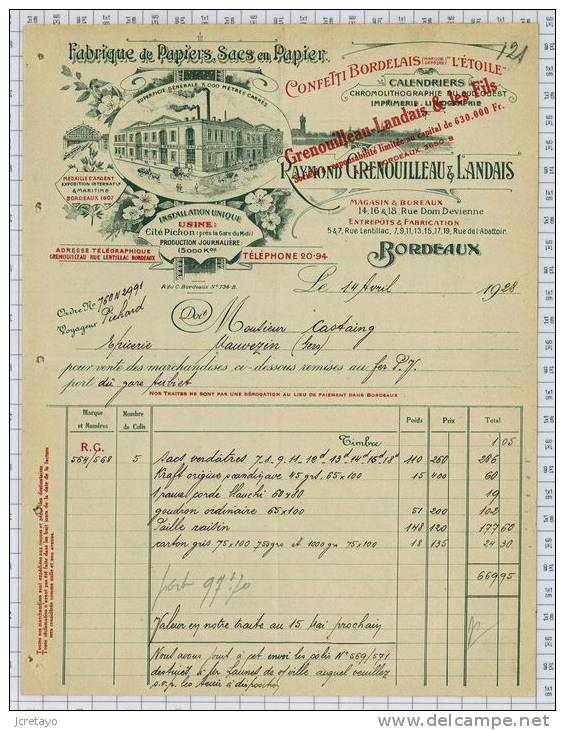 121
Fabrique de Papiers, Sacs en Papier.
CONFETTI BORDELAIS (MARQUE DÉPOSÉE) "L'ÉTOILE"
SUPERFICIE GÉNÉRALE 5.000 METRES CARRÉS
CALENDRIERS
CHROMOLITHOGRAPHIE DU SUD-OUEST
IMPRIMERIE, LITHOGRAPHIE
Grenouilleau-Landais & les Fils
Société à responsabilité limitée au capital de 630.000 Fr.
BORDEAUX 3650 B
RAYMOND GRENOUILLEAU & LANDAIS
MÉDAILLE D'ARGENT
EXPOSITION INTERNATle
& MARITIME
BORDEAUX 1907
MAGASIN & BUREAUX
14, 16 & 18, Rue Dom Devienne
ENTREPÔTS & FABRICATION
5 & 7, Rue Lentillac, 7, 9, 11, 13, 15, 17, 19, Rue de l'Abattoir.
INSTALLATION UNIQUE
USINE:
Cité Pichon (près la Gare du Midi)
PRODUCTION JOURNALIÈRE:
15000 Kos
BORDEAUX
ADRESSE TÉLÉGRAPHIQUE
GRENOUILLEAU RUE LENTILLAC BORDEAUX
TÉLÉPHONE 20-94
R. du C. Bordeaux No 734-B.
Le 14 Avril 1928
Ordre No 760 N 2991
Voyageur Pichard
Doit Monsieur Castaing
Epicerie Mauvezin (Gers)
pour vente des marchandises ci-dessous remises au fer P.V.
port dû gare Aubiet
NOS TRAITES NE SONT PAS UNE DÉROGATION AU LIEU DE PAIEMENT DANS BORDEAUX
Marque et Numéros Nombre de Colis Poids Prix Total
Timbre 1 05
R.G.
564/568 5 sacs verdâtres 7.8.9.11.12d 13d 14d 15d 18d 110 260 286
Kraft origine scandinave 45 grs. 65x100 15 400 60
19
goudron ordinaire 65x100 51 200 102
Paille raisin 148 120 177 60
carton gris 75x100 750gre et 1000 gr 75x100 18 135 24 30
669 95
port 97 70
Valeur en notre traite au 15 Mai prochain
Nous avons joint à cet envoi les colis No 569/571
s.v.p. les tenir à disposition
Toutes nos marchandises sont expédiées aux risques et périls des destinataires
Toute réclamation n'ayant pas été faite dans les huit jours de la date de la facture
sera considérée comme nulle et non avenue.
jcretayo
delcampe.net